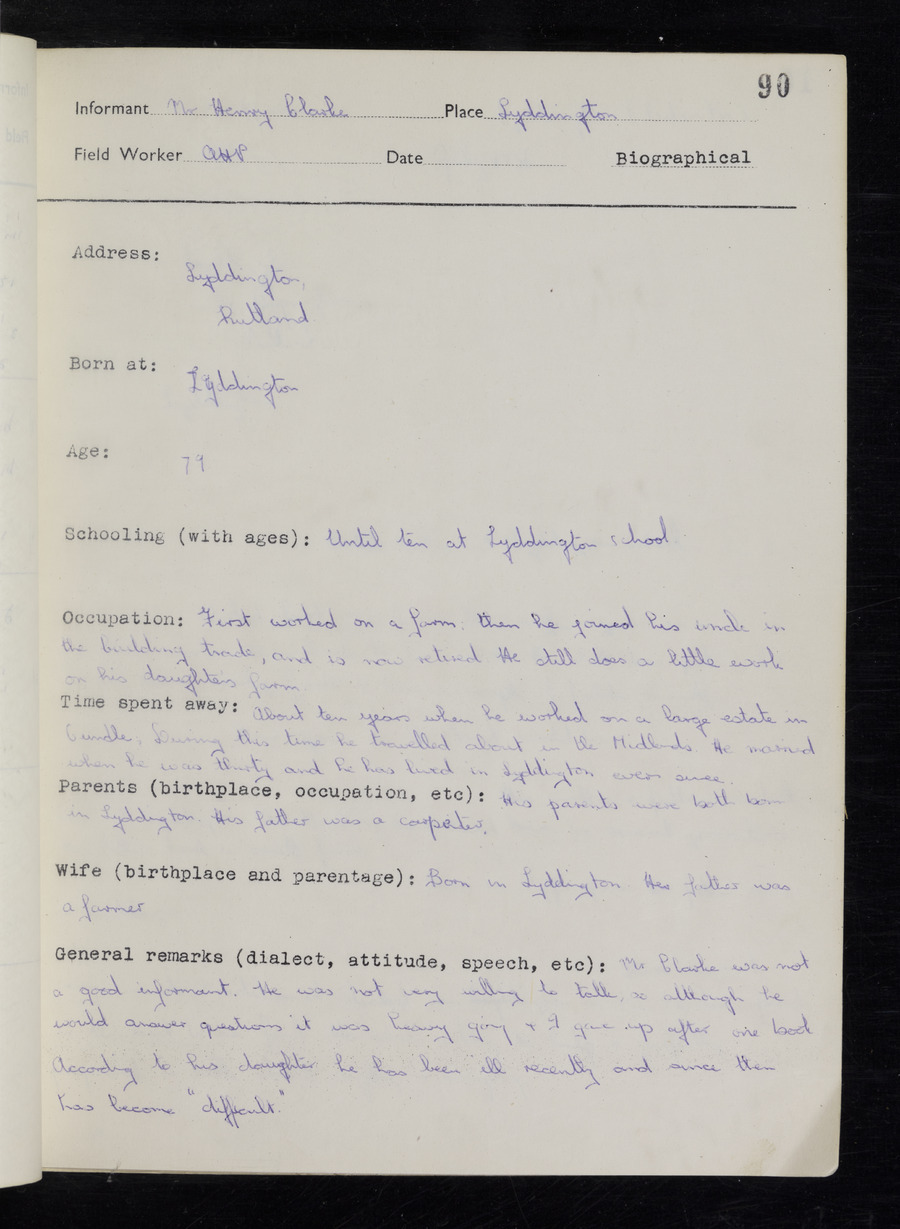 90
Informant Mr Henry Clarke Place Lyddington
Field Worker AHP Date Biographical
Address:
Lyddington,
Rutland
Born at:
Lyddington
Age:
79
Schooling (with ages): Until ten at Lyddington school
Occupation: First worked on a farm; then he joined his uncle in
the building trade, and is now retired. He still does a little work
on his daughter's farm
Time spent away: About ten years when he worked on a large estate in
Oundle; During this time he travelled about in the Midlands. He married
when he was thirty and he has lived in Lyddington ever since.
Parents (birthplace, occupation, etc): His parents were both born
in Lyddington. His father was a carpenter.
Wife (birthplace and parentage): Born in Lyddington. Her father was
a farmer
General remarks (dialect, attitude, speech, etc): Mr Clarke was not
a good informant. He was not very willing to talk, so although he
would answer questions it was heavy going & I gave up after one book
According to his daughter he has been ill recently and since then
has become "difficult."